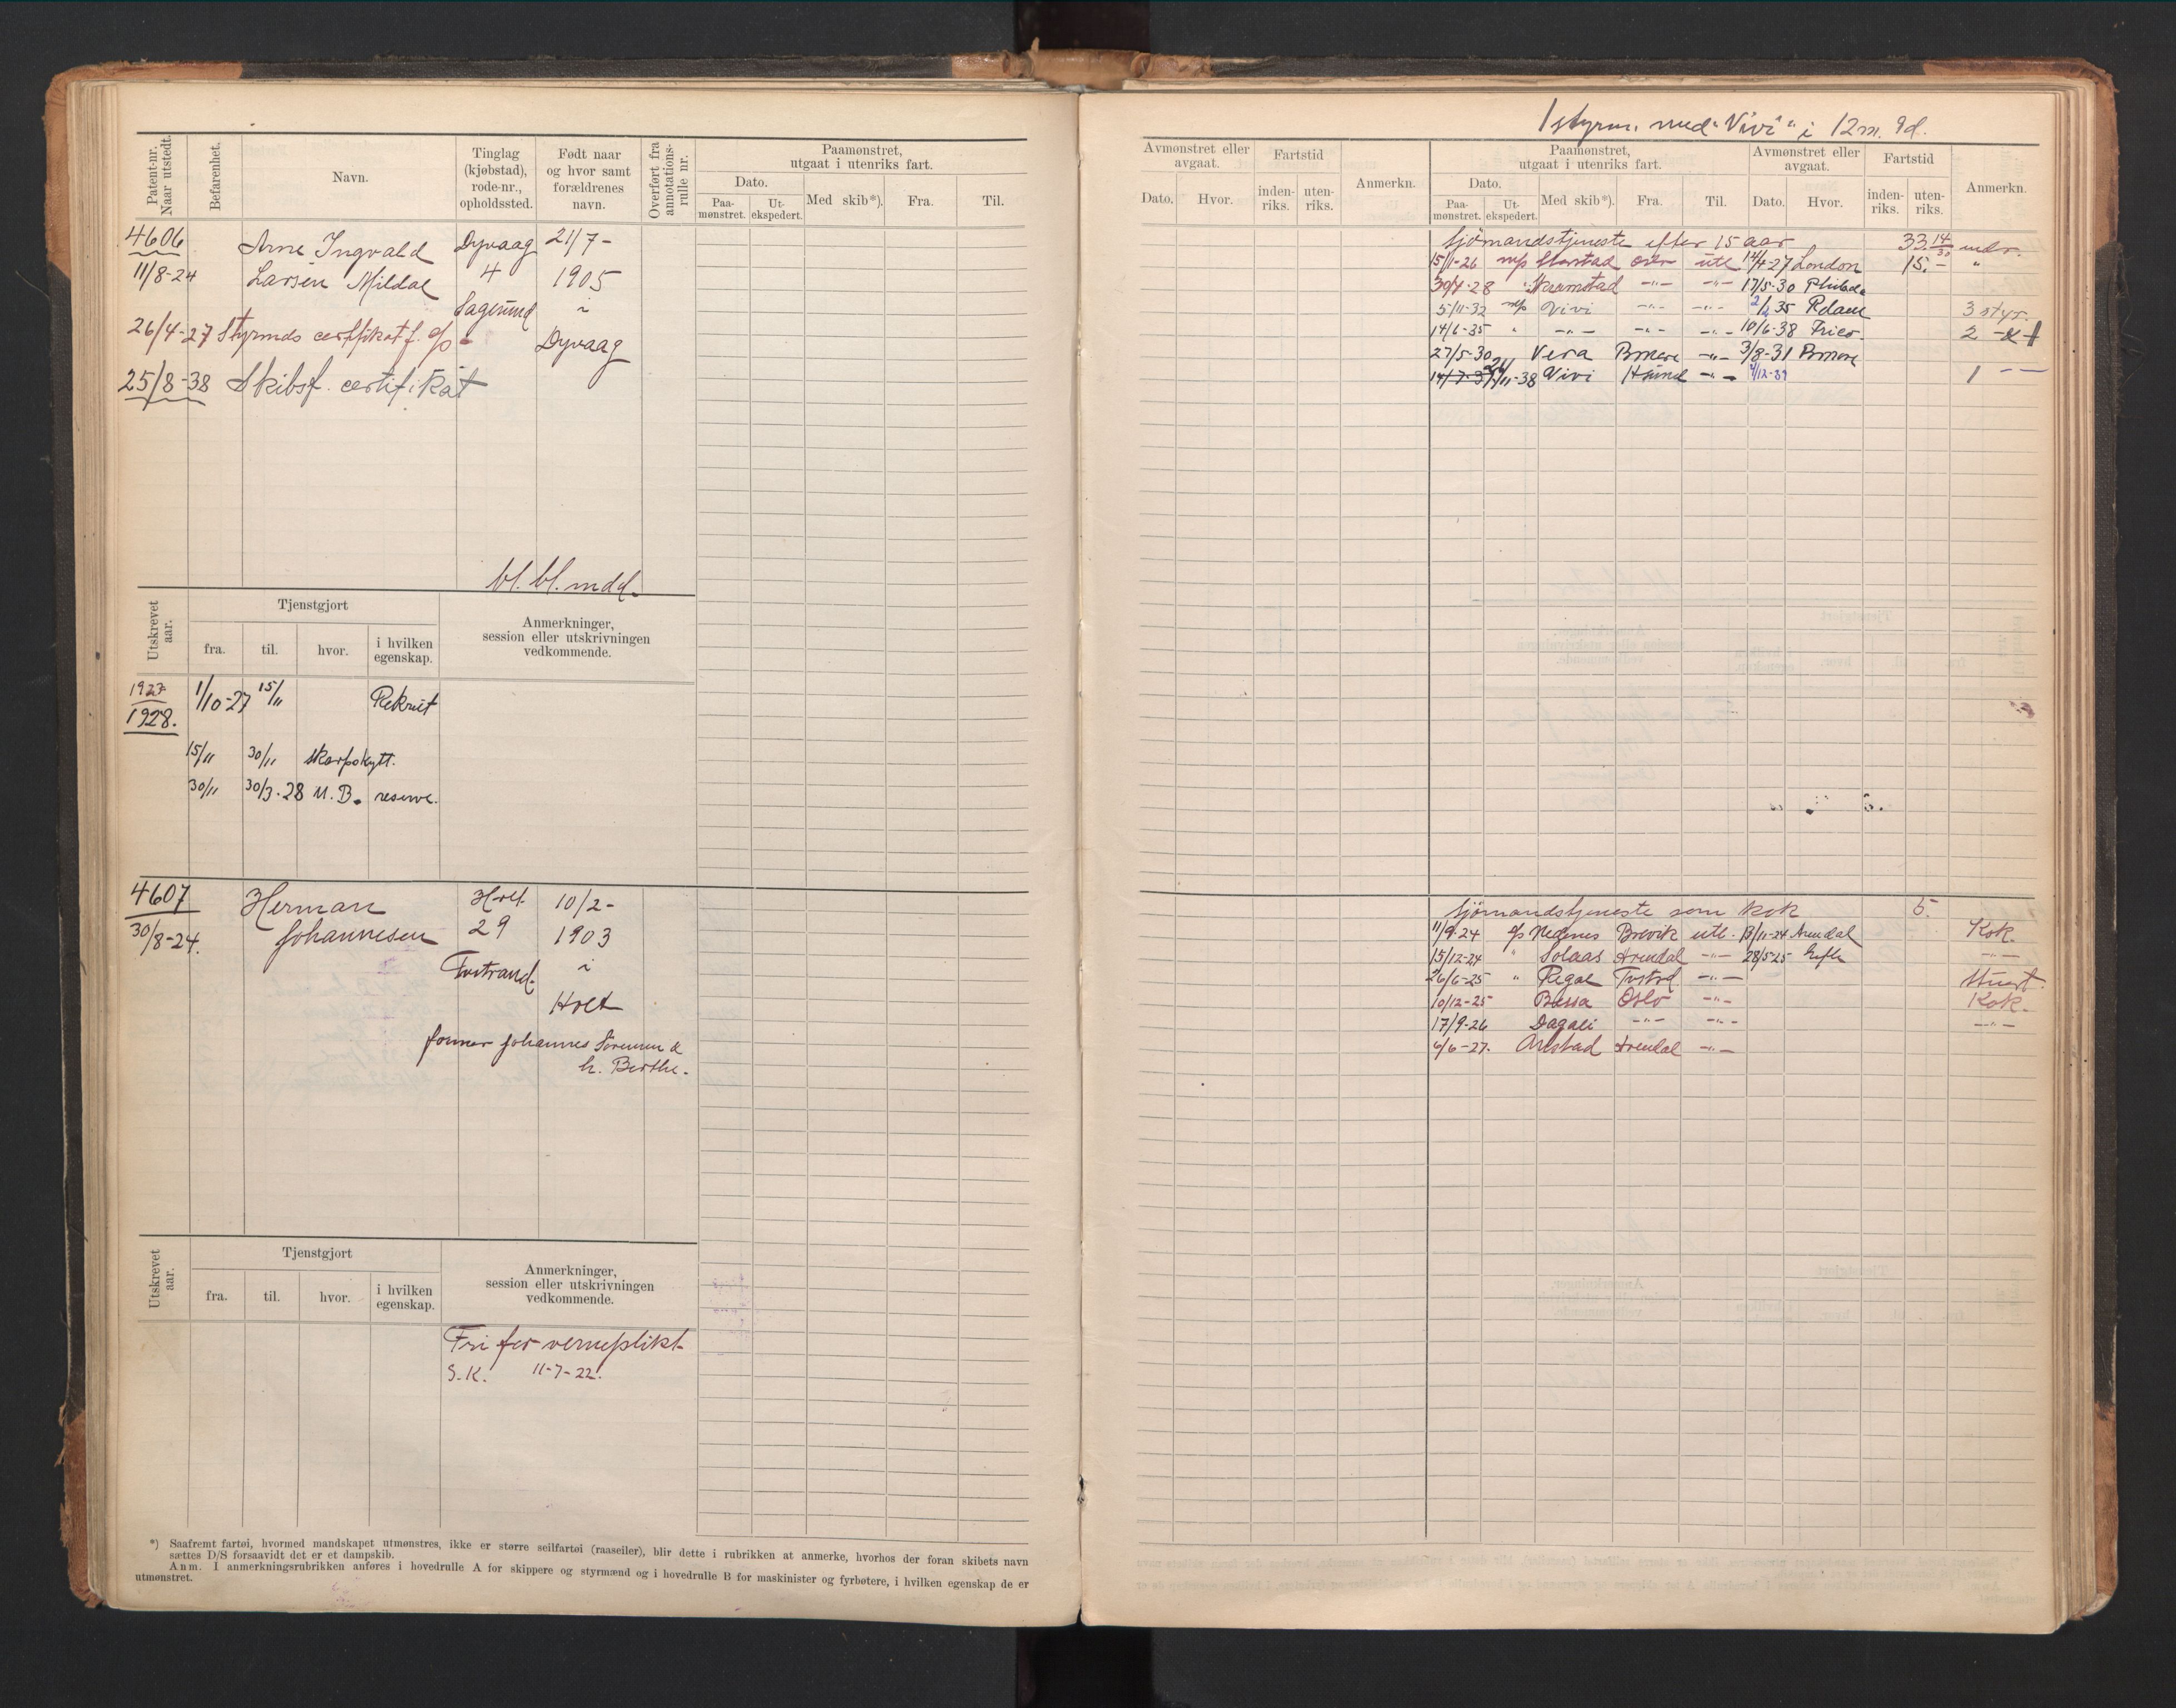 Patent-nr. Naar utstedt.
Befarenhet.
Navn.
Tinglag (kjøbstad), rode-nr., opholdssted.
Født naar og hvor samt forældrenes navn.
Overført fra annotations-rulle nr.
Paamønstret, utgaat i utenriks fart.
Dato.
Paa-mønstret.
Ut-ekspedert.
Med skib*).
Fra.
Til.
4606
11/8-24
Arne Ingvald
Larsen Mildal
Dyvaag
4
Sagesund
21/7-
1905
i
Dyvaag
26/4-27 Styrmds certifikat f.
25/8-38 Skibsf. certifikat
bl. bl. mdd.
Utskrevet aar.
Tjenstgjort
fra.
til.
hvor.
i hvilken egenskap.
Anmerkninger, session eller utskrivningen vedkommende.
1927
1928.
1/10-27 15/11 Rekrut
15/11 30/11 skarpskytt.
30/11 30/3-28 M.B. reserve.
4607
30/8-24.
Herman
Johannesen
Holt
29
Tvetrand.
10/2-
1903
i
Holt
Johannes Sørensen &
h. Berthe.
Utskrevet aar.
Tjenstgjort
fra.
til.
hvor.
i hvilken egenskap.
Anmerkninger, session eller utskrivningen vedkommende.
Fri for verneplikt
S.K. 11-7-22.
*) Saafremt fartøi, hvormed mandskapet utmønstres, ikke er større seilfartøi (raaseiler), blir dette i rubrikken at anmerke, hvorhos der foran skibets navn
sættes D/S forsaavidt det er et dampskib.
Anm. I anmerkningsrubrikken anføres i hovedrulle A for skippere og styrmænd og i hovedrulle B for maskinister og fyrbøtere, i hvilken egenskap de er
utmønstret.
1 styrm. med "Vivi" i 12 m. 9 d.
Avmønstret eller avgaat.
Dato.
Hvor.
Fartstid
inden-riks.
uten-riks.
Anmerkn.
Paamønstret, utgaat i utenriks fart.
Dato.
Paa-mønstret.
Ut-ekspedert.
Med skib*).
Fra.
Til.
Avmønstret eller avgaat.
Dato.
Hvor.
Fartstid
inden-riks.
uten-riks.
Anmerkn.
Sjømandstjeneste efter 15 aar 33 14/30 mdr.
15/1-26 m/s Storstad utl. 14/4-27 London 15.- "
30/4-28 -"- -"- 17/5-30
5/11-32 m/s Vivi -"- -"- 35 Rdam 3 styr.
14/6-35 " -"- -"- -"- 10/6-38 2
27/5-30 Vera -"- 3/8-31
14/7-37 11-38 Vivi -"- 1/12-39 1 -
Sjømandstjeneste som kok 5.
11/9-24 Brevik utl. 13/11-24 Arendal Kok.
15/12-24 " Solaas Arendal -"- 28/5-25 Gefle -"-
26/6-25 " Regal -"- Stuert.
10/12-25 Bessa Oslo -"- Kok.
17/9-26 Dagali -"- -"- -"-
6/6-27. Arendal -"-